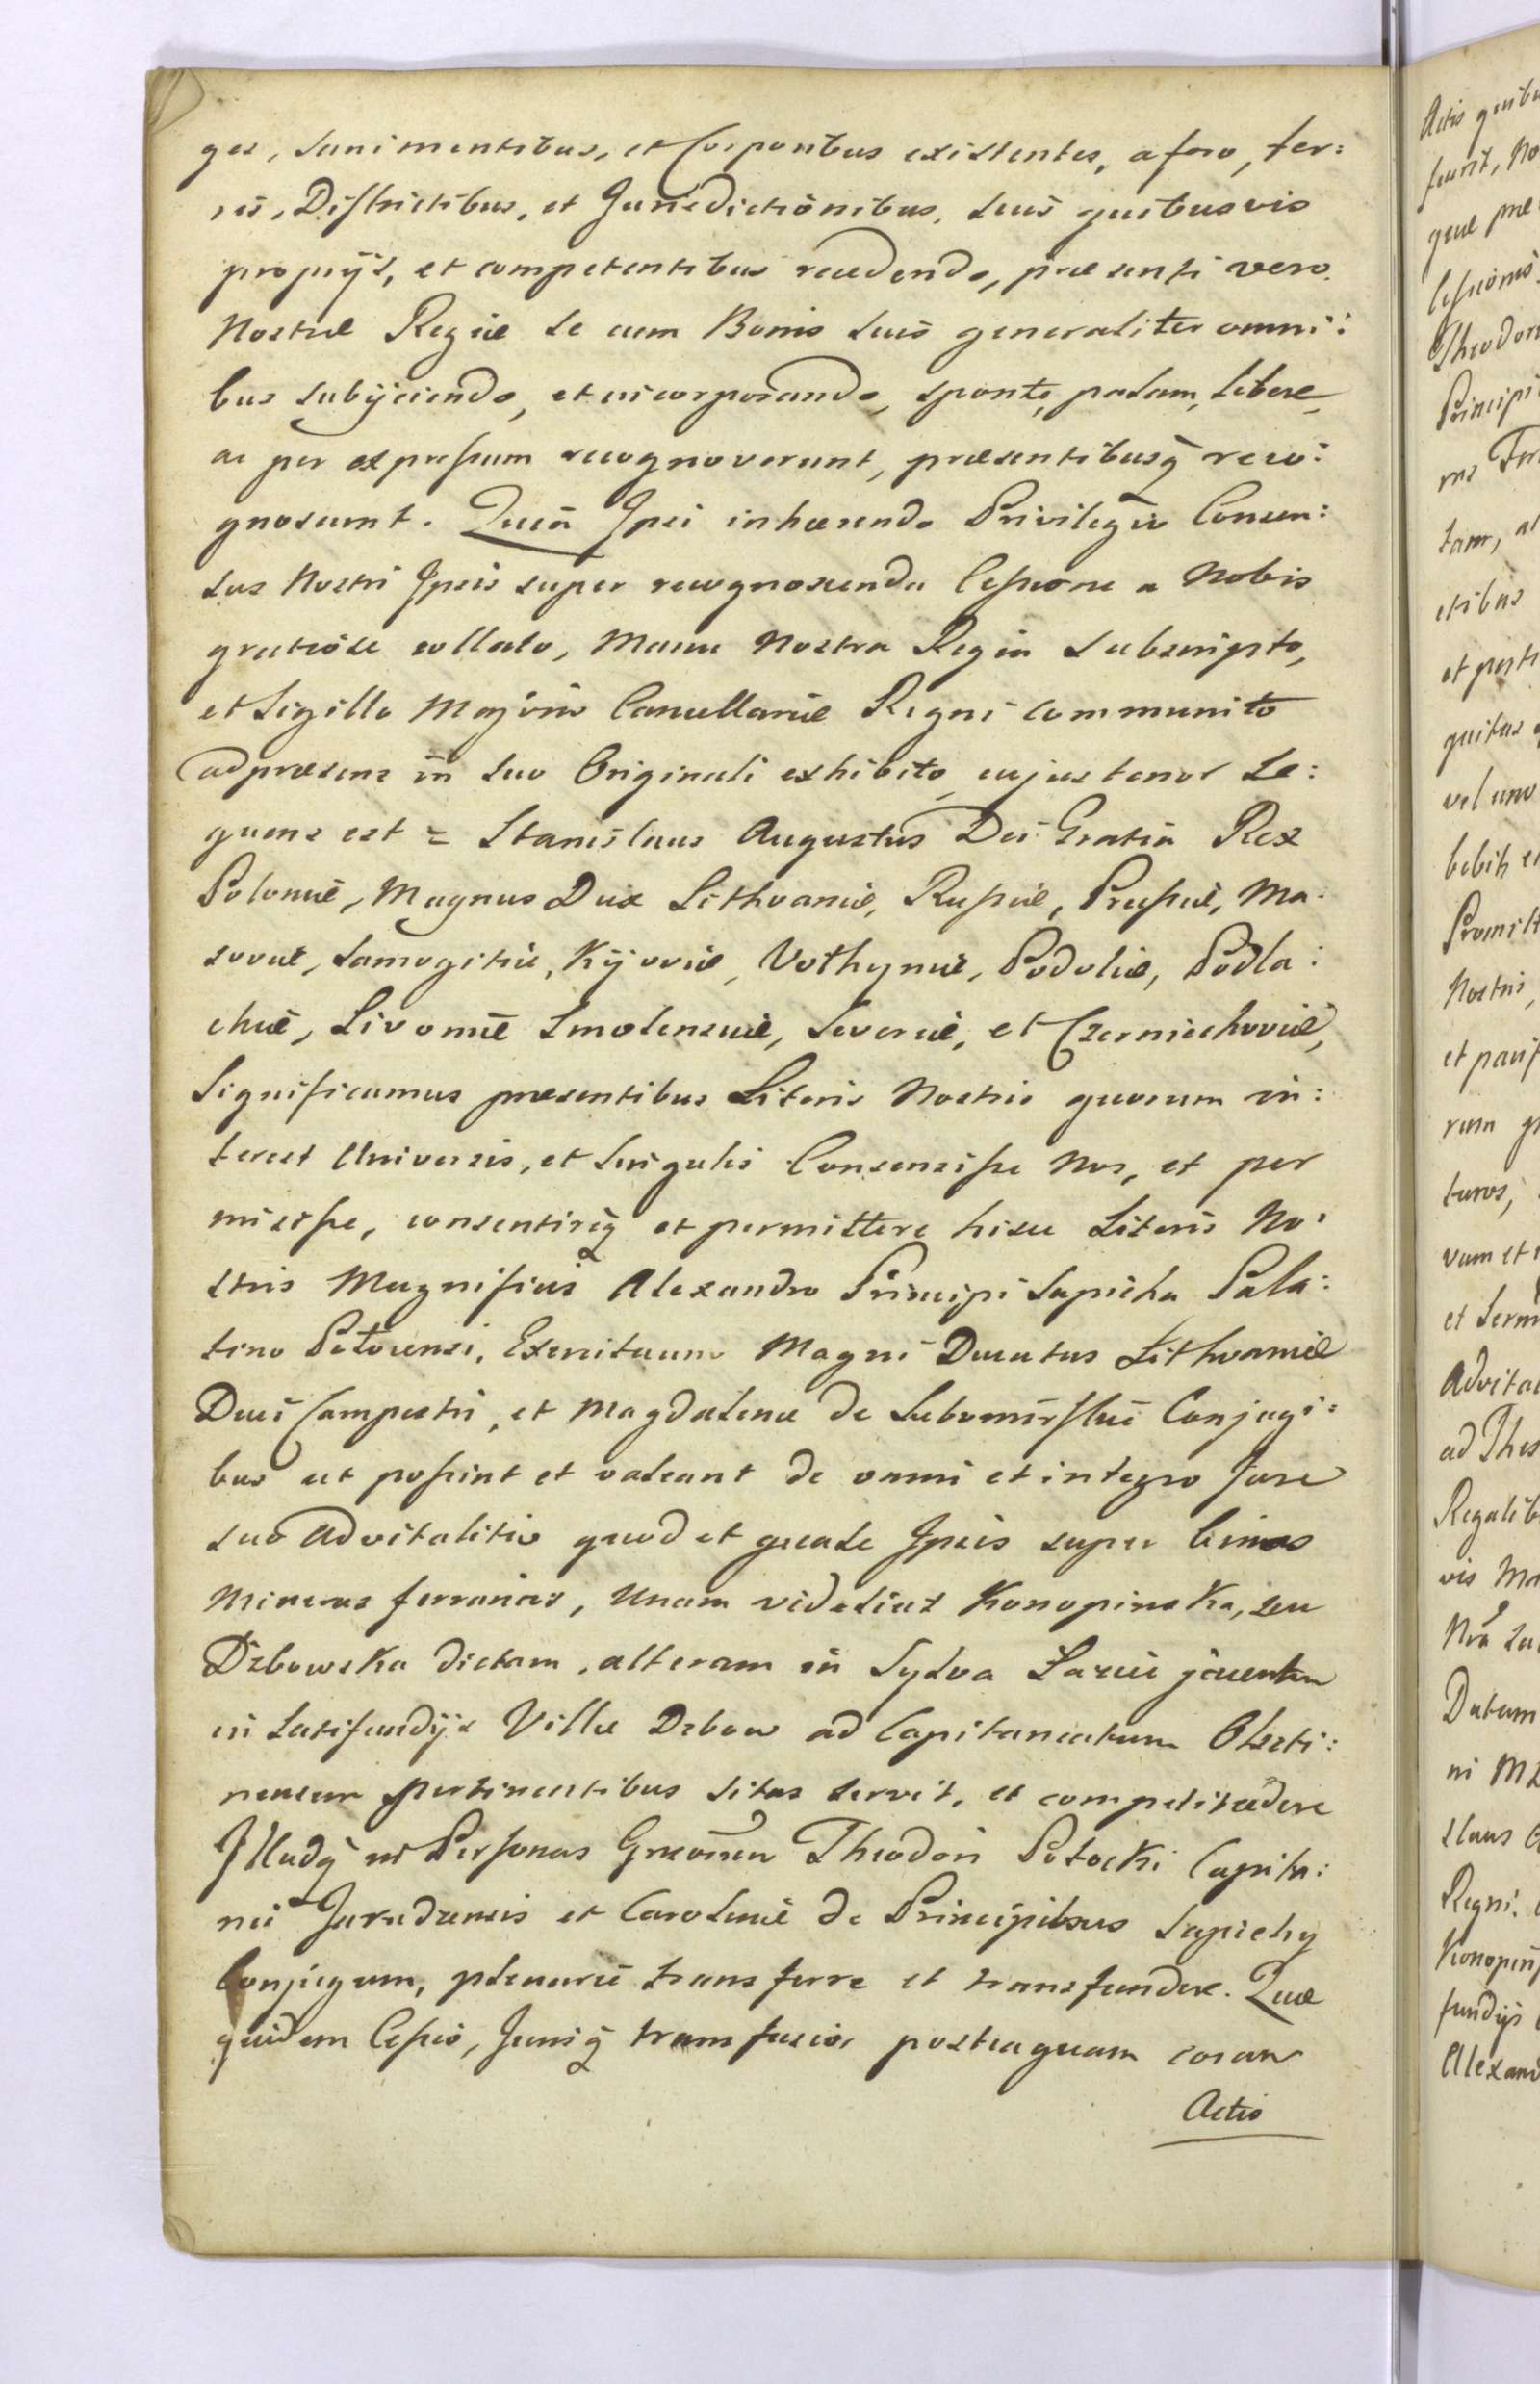 ges, sani mentibus, et Corporibus existentes, a foro, ter:
ris, Districtibus, et Jurisdictionibus, suis quibusvis
proprijs, et competentibus recedendo, præsenti vero
Nostræ Regiæ se cum Bonis suis generaliter omni:
bus subijciendo, et incorporando, sponte, palam, libere,
ac per expressum recognoverunt, præsentibusq̃ reco:
gnoscunt. Quia Ipsi inhærendo Privilegio Consen:
sus Nostri Ipsis super recognoscenda Cessione a Nobis
gratiose collato, Manu Nostra Regia subscripto,
et Sigillo Majoris Cancellariæ Regni communito
ad præsens in suo Originali exhibito, cujus tenor se:
quens est = Stanislaus Augustus Dei Gratia Rex
Poloniæ, Magnus Dux Lithvaniæ, Russiæ, Prussiæ, Ma:
soviæ, Samogitiæ, Kijoviæ, Volhyniæ, Podoliæ, Podla:
chiæ, Livoniæ Smolensciæ, Severiæ, et Czerniechoviæ,
Significamus præsentibus Literis Nostris quorum in:
terest Universis, et Singulis Consensisse Nos, et per
misisse, consentireq̃ et permittere hisce Literis No:
stris Magnificis Alexandro Principi Sapieha Pala:
tino Polocensi, Exercituum Magni Ducatus Lithvaniæ
Duci Campestri, et Magdalenæ de Lubomirskie Conjugi:
bus ut possint et valeant de omni et integro Jure
suo Advitalitio quod et quale Ipsis super binas
Mineras ferrarias, Unam videlicet Konopinska, seu
Dzbowska dictam, alteram in Sylva Łazuie
in Latifundijs Villæ Dzbow ad Capitaneatum Olszti:
nensem pertinentibus sitas servit, et competit cedere
Illudq̃ in Personas Grsorum Theodori Potocki Capita:
nei et Carolinæ de Principibus Sapiehy
Conjugum, plenarie transferre et transfundere. Quæ
quidem Cessio, Jurisq̃ transfusio, postraquam coram
Actis

Actis quibu
fuerit, No
quæ præ
Cessionis
Theodoro
Principi
tam, al
ctibus
et post
vel uno
Promitt
Nostris,
et
rum
turos,
vam et
et
Advital
ad Thes
Regalib
vis Ma
Datum
ni
slaus
Regni.
Konopin
fundijs
Alexand